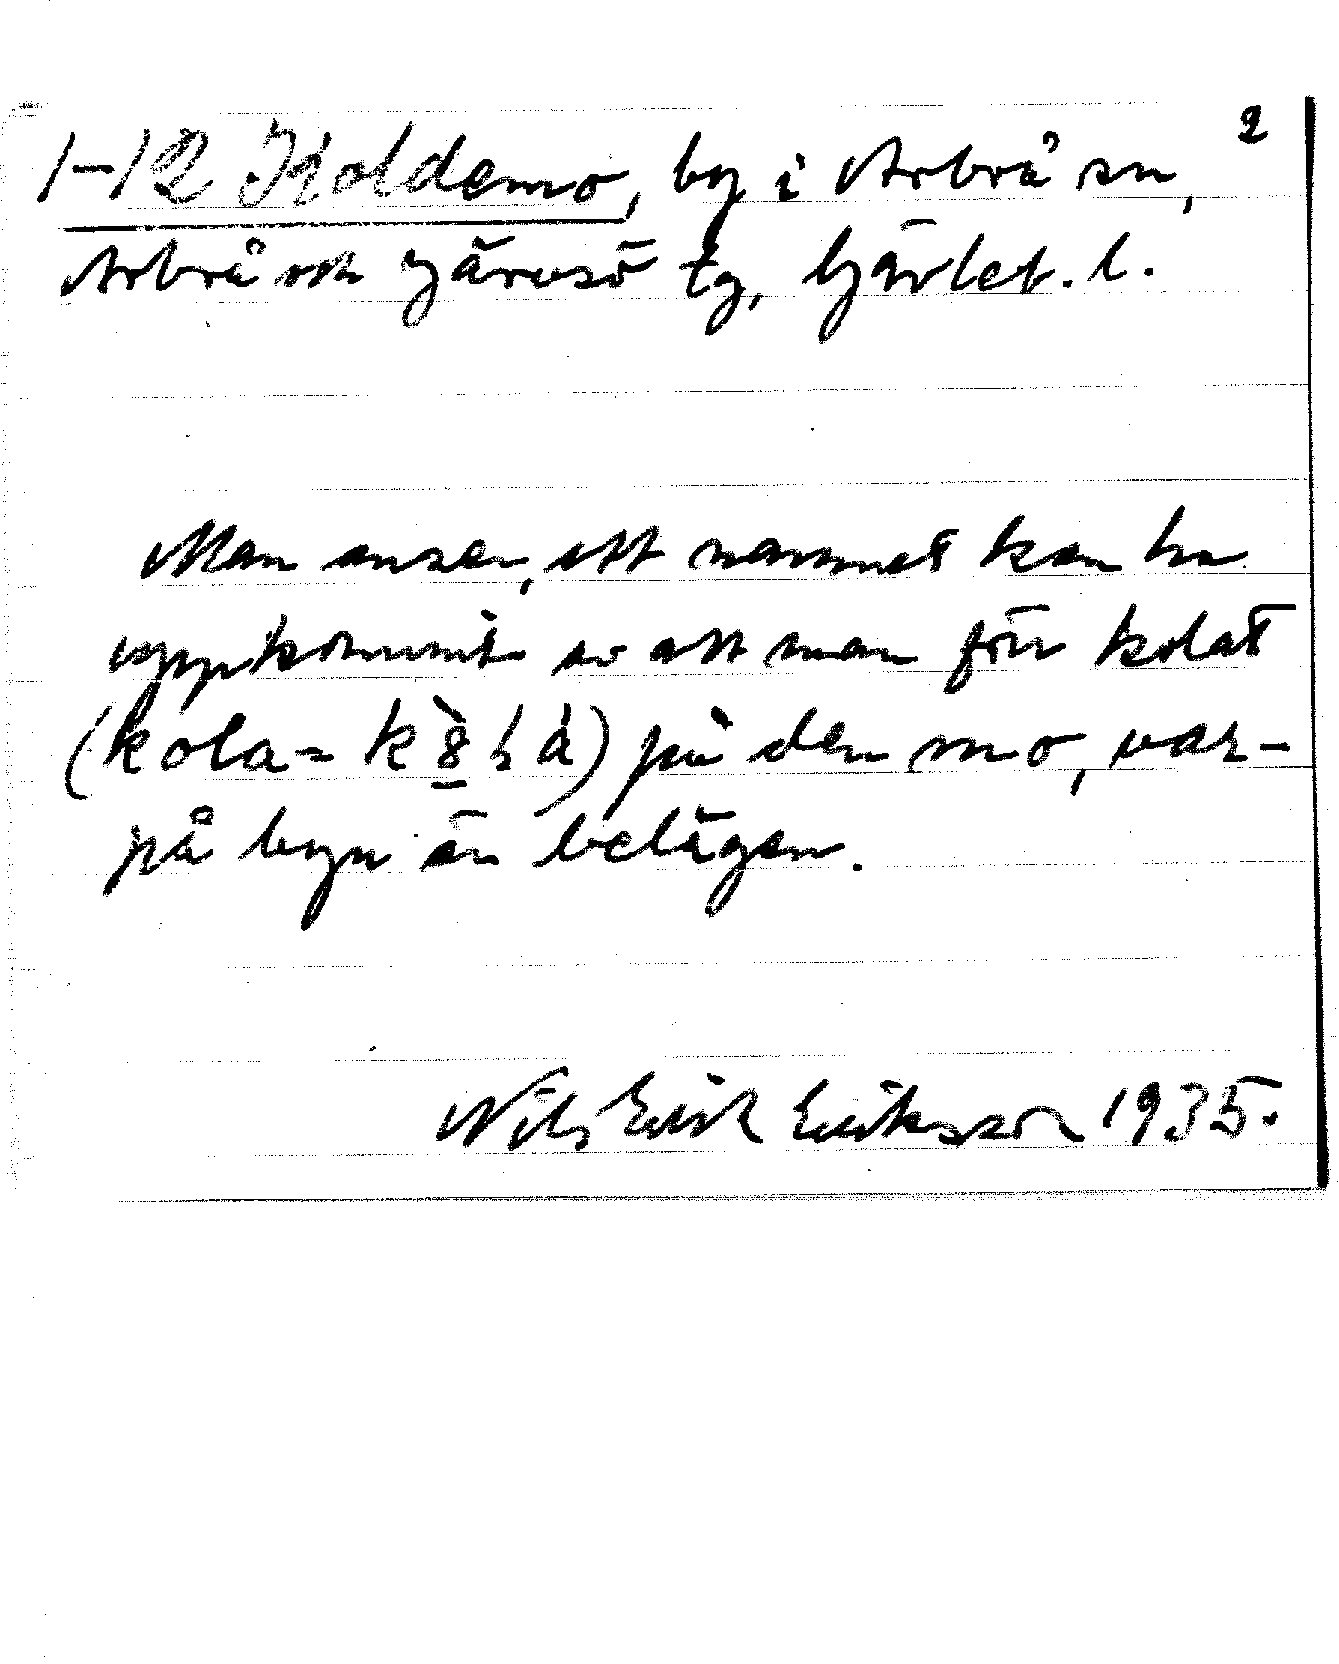 2
1-12 Koldemo, by i Arbrå sn,
Arbrå och Järvsö tg, Gävleb. l.
Man anser, att namnet kan ha
uppkommit av att man förr kolat
(kola = ) på den mo, var-
på byn är belägen.
Nils Erik Eriksson 1935.